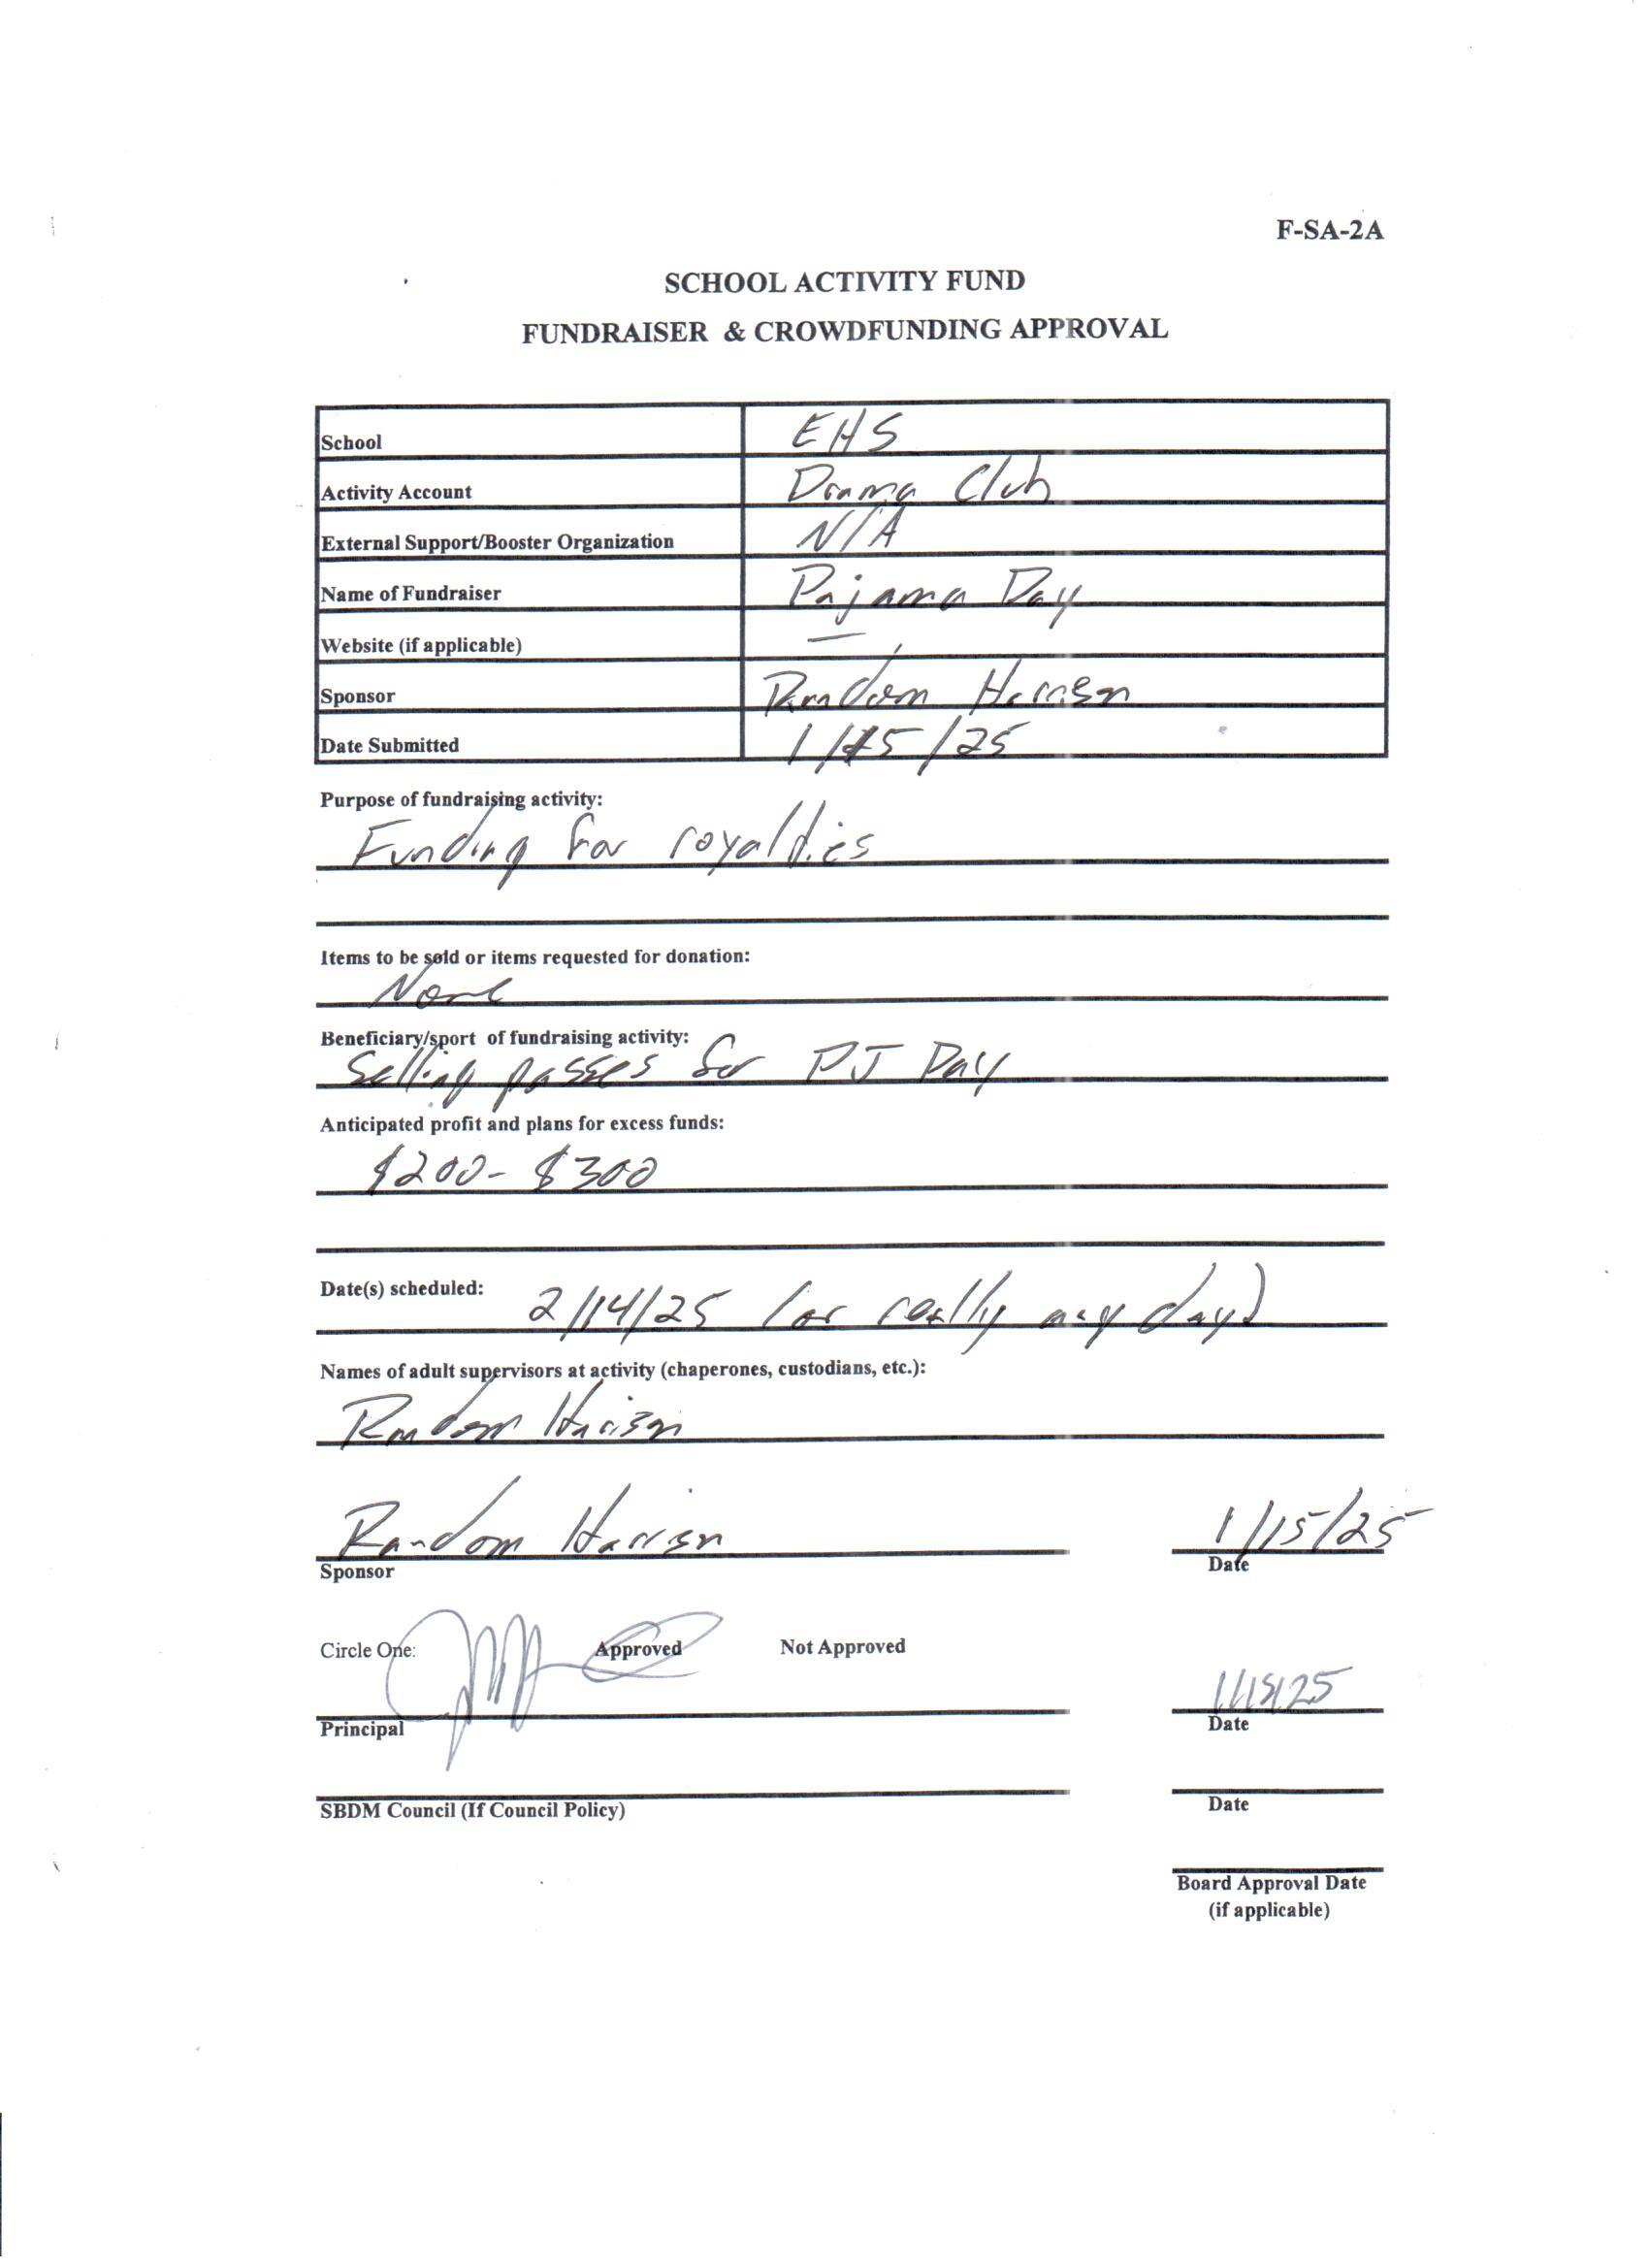 F-SA-2A
SCHOOL ACTIVITY FUND
FUNDRAISER & CROWDFUNDING APPROVAL
School EHS
Activity Account Drama Club
External Support/Booster Organization N/A
Name of Fundraiser Pajama Day
Website (if applicable) —
Sponsor Random Harrison
Date Submitted 1/15/25
Purpose of fundraising activity:
Funding for royalties
Items to be sold or items requested for donation:
None
Beneficiary/sport of fundraising activity:
Selling passes for PJ Day
Anticipated profit and plans for excess funds:
$200-$300
Date(s) scheduled: 2/14/25 (or really any day)
Names of adult supervisors at activity (chaperones, custodians, etc.):
Random Harrison
Random Harrison 1/15/25
Sponsor Date
Circle One: Approved Not Approved
1/15/25
Principal Date
SBDM Council (If Council Policy) Date
Board Approval Date
(if applicable)